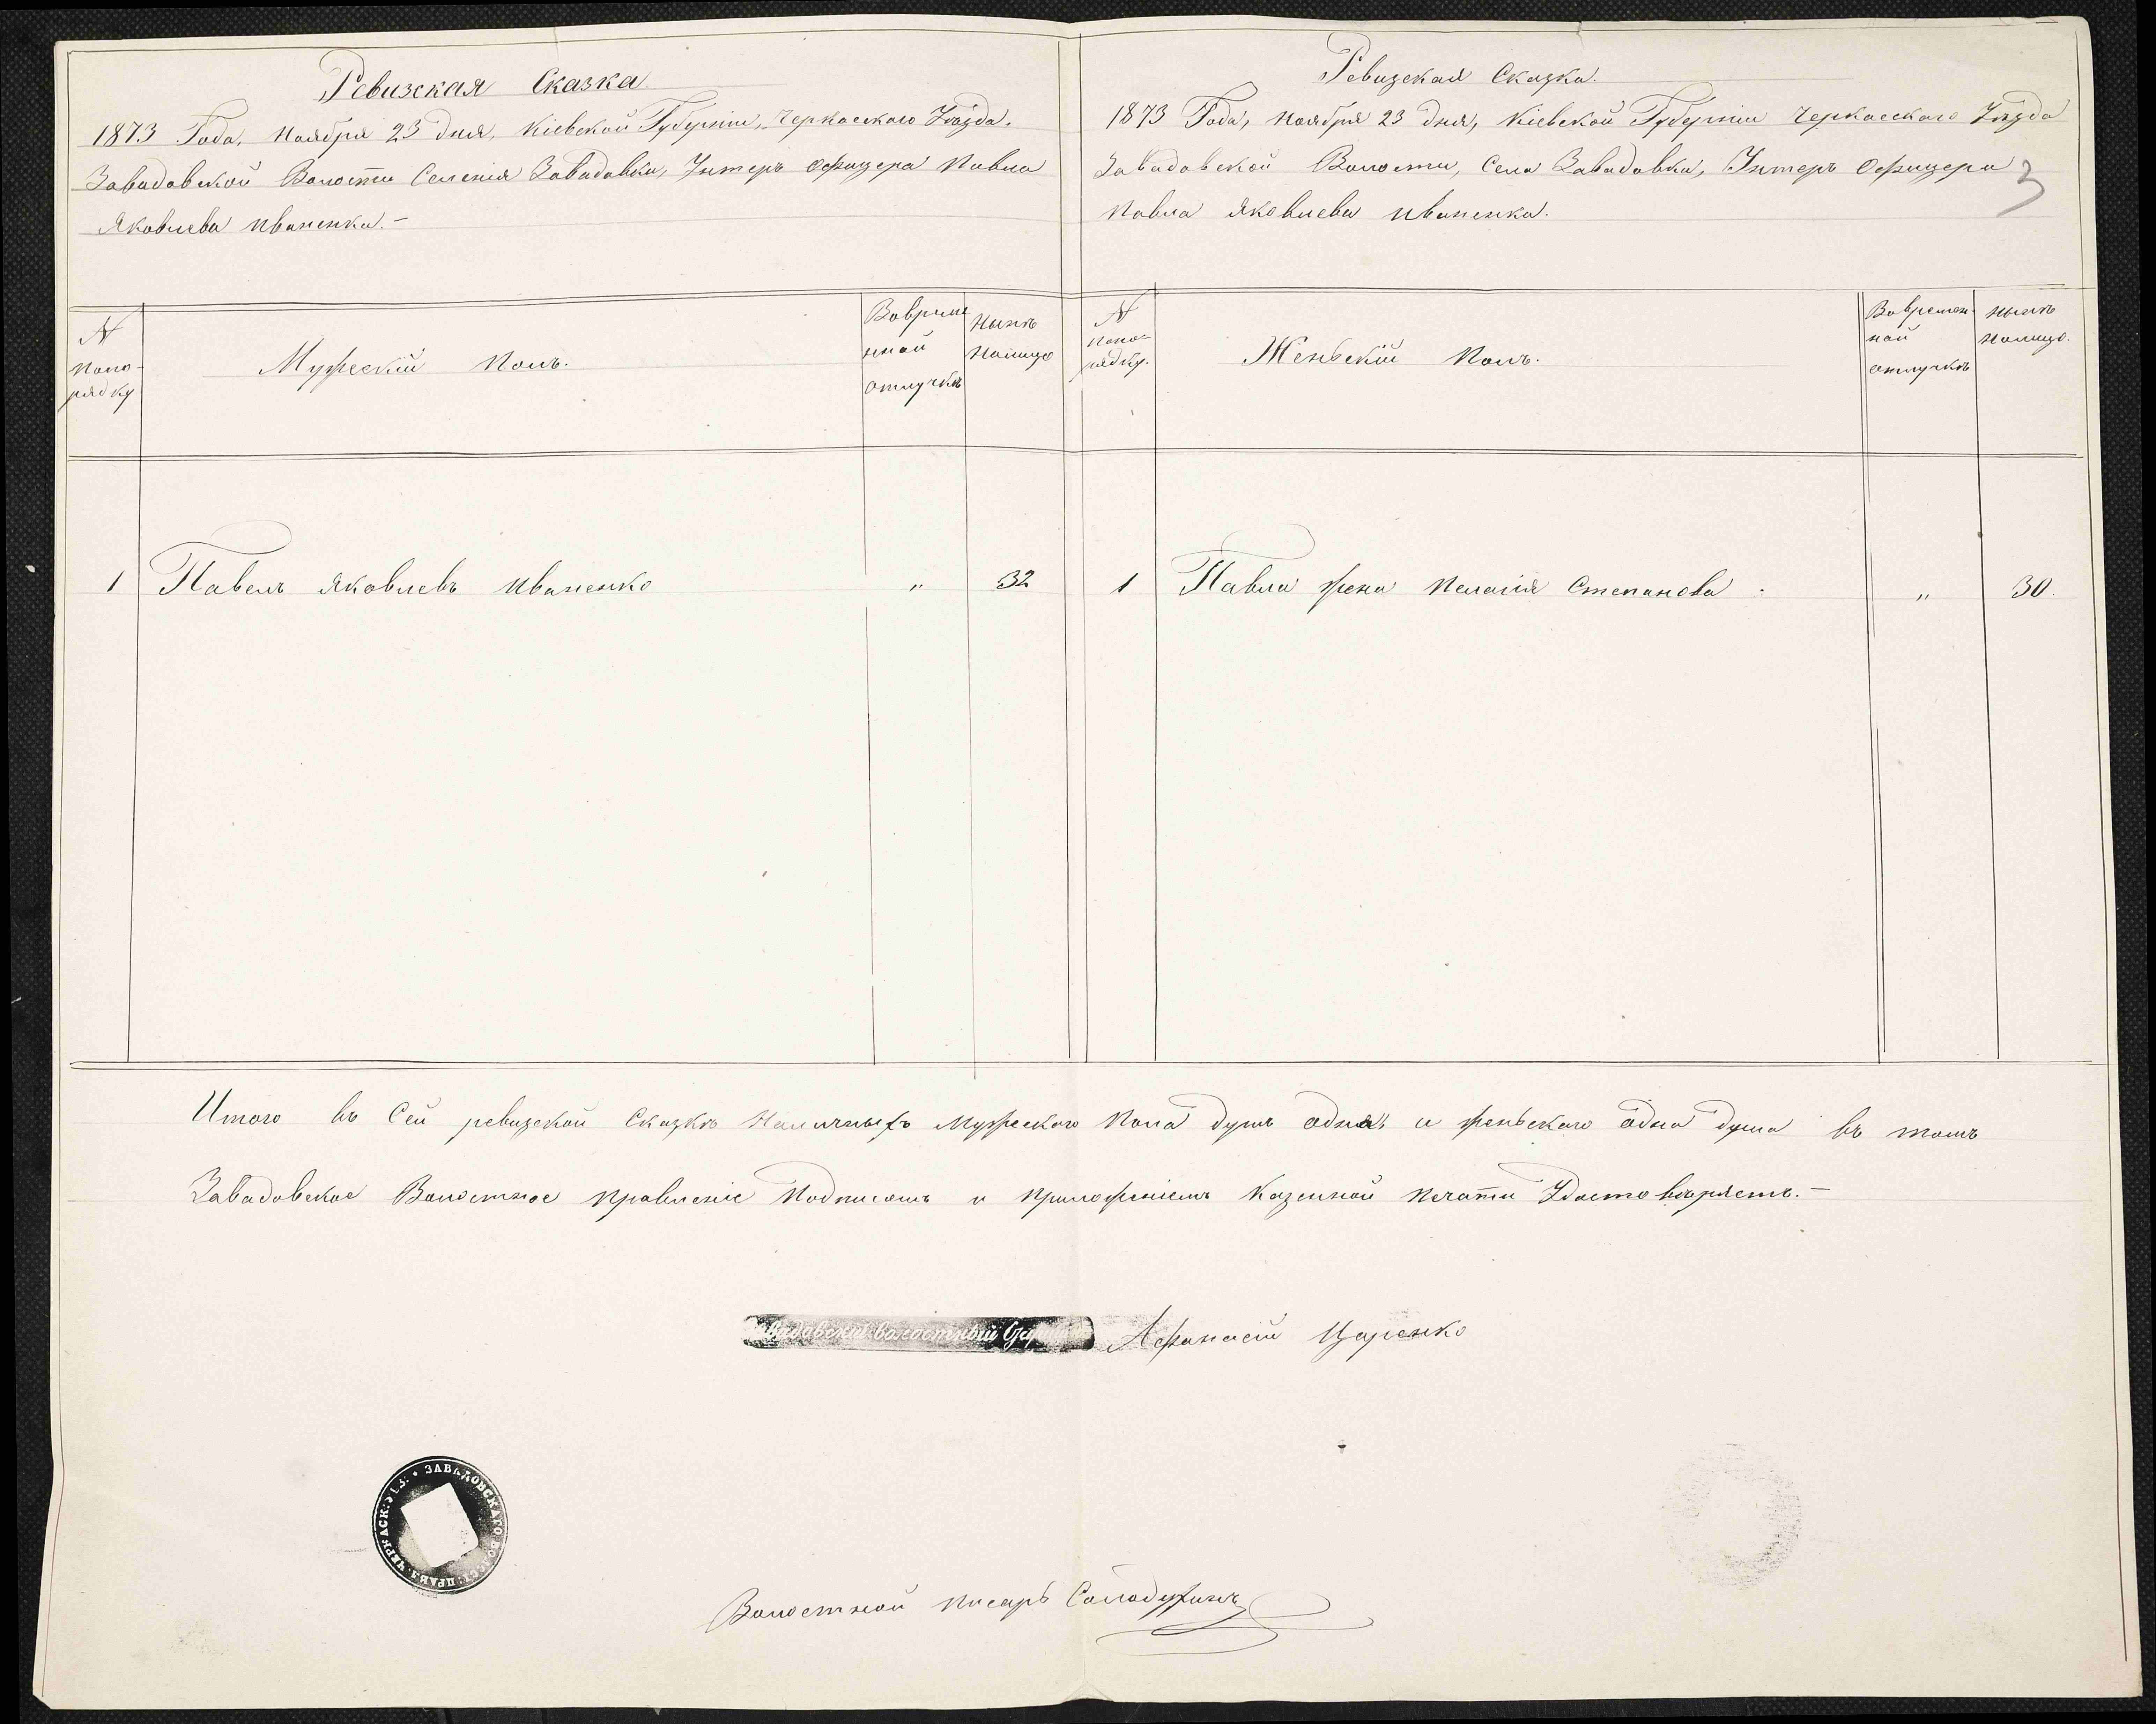 Ревизская Сказка
1873 Года, Ноября 23 дня, Кіевской Губерніи, Черкасскаго Уѣзда.
Завадовской Волости Селенія Завадовки, Унтеръ Офицера Павла
Яковлева Иваненка.-
N
попо-
рядку
Мужескій Полъ.
Вовреме
нной
отлучкѣ
Нынѣ
Налицо
1 Павелъ Яковлевъ Иваненко " 32
Ревизская Сказка.
1873 Года, Ноября 23 дня, Кіевской Губерніи Черкасскаго Уѣзда
Завадовской Волости, Села Завадовка, Унтеръ Офицера
Павла Яковлева Иваненка.
3
N
попо-
рядку.
Женьскій Полъ.
Вовремен-
ной
отлучкѣ
Нынѣ
Налицо.
1 Павла жена Пелагія Степанова . " 30.
Итого въ Сей ревизской Сказкѣ Наличныхъ Мужескаго Пола душъ одна, и женьскаго одна душа въ томъ
Завадовское Волостное Правленіе Подписомъ и Приложеніемъ Казенной Печати Удостовѣряетъ.-
Завадовскій волостный Афанасій Царенко
ЗАВАДОВСКАГО ВОЛОСТ: ПРАВЛ: ЧЕРКАСК: УѢЗ:
Волостной Писарь Солодухинъ